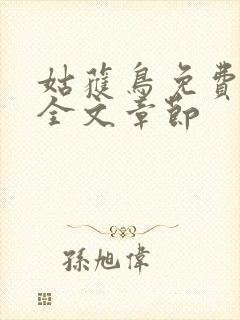 姑蒦鳥免費
全文章節
孫旭偉